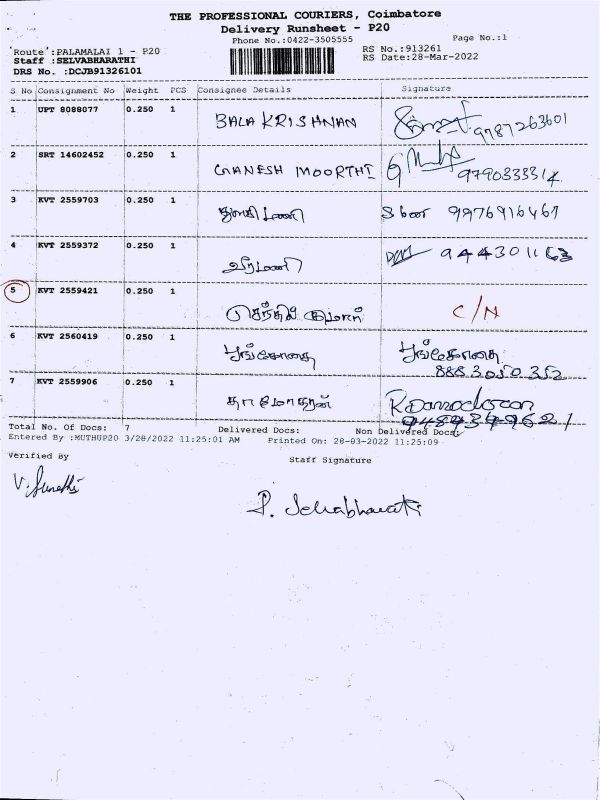 THE PROFESSIONAL COURIERS, Coimbatore
Delivery Runsheet - P20
Phone No.:0422-3505555 Page No.:1
Route :PALAMALAI 1 - P20 RS No.:913261
Staff :SELVABHARATHI RS Date:28-Mar-2022
DRS No. :DCJB91326101
S No Consignment No Weight PCS Consignee Details Signature
1 UPT 8088077 0.250 1 BALA KRISHNAN 9787263601
2 SRT 14602452 0.250 1 GANESH MOORTHI 9790333314
3 KVT 2559703 0.250 1 9976916467
4 KVT 2559372 0.250 1 வீரமணி
5 KVT 2559421 0.250 1 செந்தில் குமார் C/N
6 KVT 2560419 0.250 1 பூங்கோதை பூங்கோதை
8883050352
7 KVT 2559906 0.250 1 தாமோதரன் K Damodaran
Total No. Of Docs: 7 Delivered Docs: Non Delivered Docs:
Entered By :MUTHUP20 3/28/2022 11:25:01 AM Printed On: 28-03-2022 11:25:09
Verified By Staff Signature
P. Selvabharathi